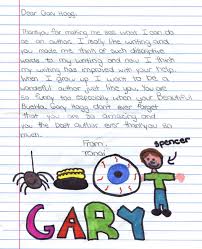 Dear Gary Hogg,
Thankyou for making me see what I can do
as an author. I really like writing and
you made me think of such discriptive
words to my writing and now I think
my writing has improved with your help.
When I grow up I want to be a
wonderful author just like you. You are
so funny too especially when your beautiful
Gary Hogg don't ever forget
that you are so amazing and
you the best author ever thankyou so
much.
From,
spencer
GARY